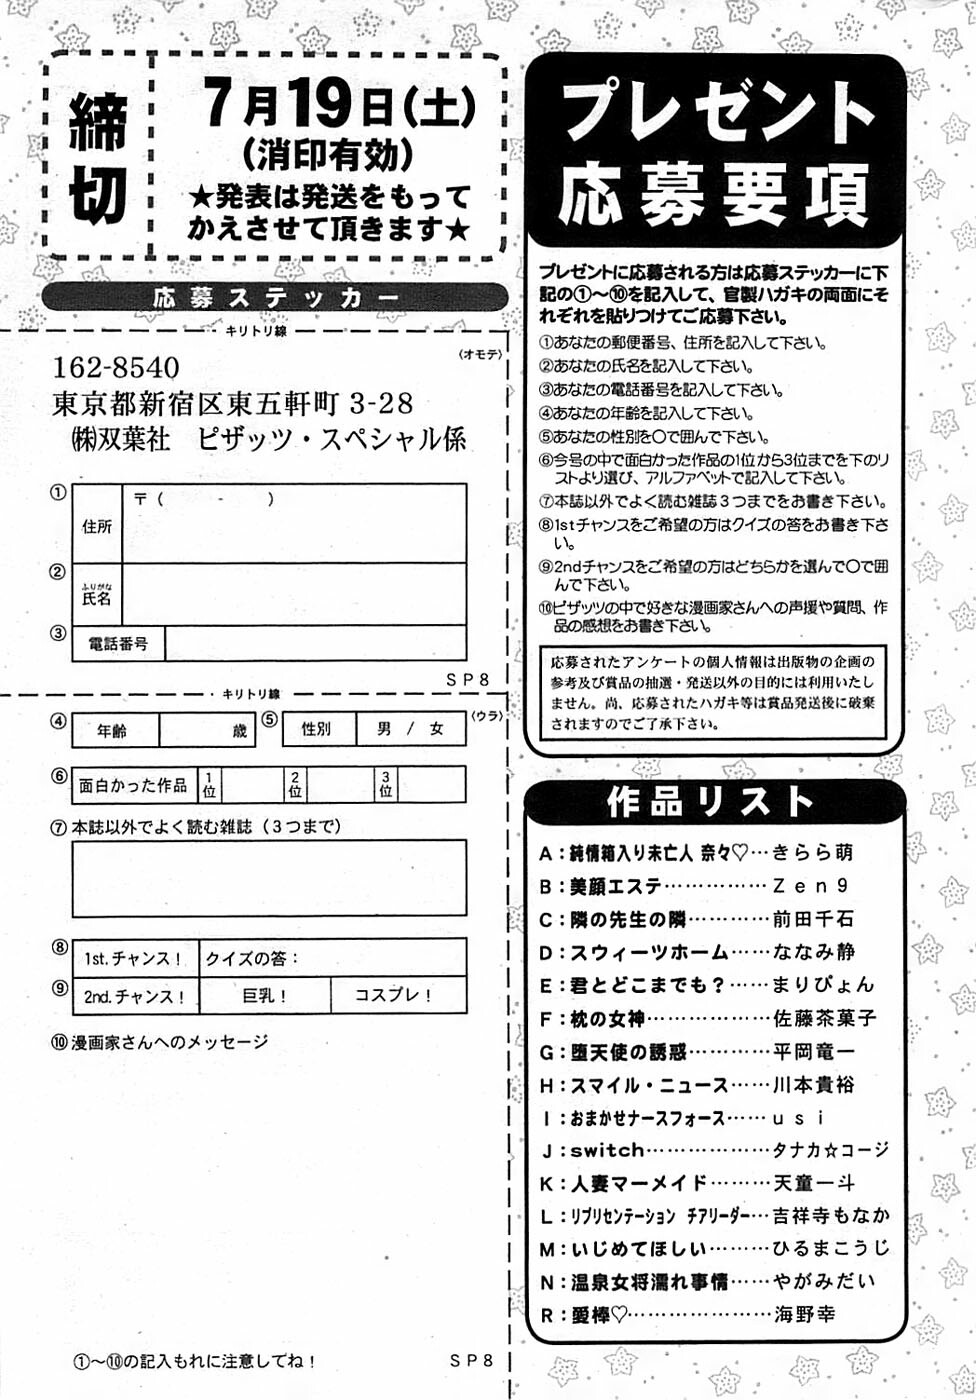 締切
7月19日(土)
(消印有効)
★発表は発送をもって
かえさせて頂きます★
応募ステッカー
キリトリ線
〈オモテ〉
162-8540
東京都新宿区東五軒町 3-28
㈱双葉社　ピザッツ・スペシャル係
①
住所
〒（　　-　　）
②
ふりがな
氏名
③
電話番号
SP8
キリトリ線
〈ウラ〉
④ 年齢　歳 ⑤ 性別 男 / 女
⑥ 面白かった作品 1位 2位 3位
⑦本誌以外でよく読む雑誌（3つまで）
⑧ 1st.チャンス！ クイズの答：
⑨ 2nd.チャンス！ 巨乳！ コスプレ！
⑩漫画家さんへのメッセージ
①〜⑩の記入もれに注意してね！
SP8
プレゼント
応募要項
プレゼントに応募される方は応募ステッカーに下
記の①〜⑩を記入して、官製ハガキの両面にそ
れぞれを貼りつけてご応募下さい。
①あなたの郵便番号、住所を記入して下さい。
②あなたの氏名を記入して下さい。
③あなたの電話番号を記入して下さい。
④あなたの年齢を記入して下さい。
⑤あなたの性別を○で囲んで下さい。
⑥今号の中で面白かった作品の1位から3位までを下のリ
ストより選び、アルファベットで記入して下さい。
⑦本誌以外でよく読む雑誌3つまでをお書き下さい。
⑧1stチャンスをご希望の方はクイズの答をお書き下さ
い。
⑨2ndチャンスをご希望の方はどちらかを選んで○で囲
んで下さい。
⑩ピザッツの中で好きな漫画家さんへの声援や質問、作
品の感想をお書き下さい。
応募されたアンケートの個人情報は出版物の企画の
参考及び賞品の抽選・発送以外の目的には利用いたし
ません。尚、応募されたハガキ等は賞品発送後に破棄
されますのでご了承下さい。
作品リスト
A：純情箱入り未亡人 奈々♡…きらら萌
B：美顔エステ……………Zen9
C：隣の先生の隣…………前田千石
D：スウィーツホーム……ななみ静
E：君とどこまでも？……まりぴょん
F：枕の女神………………佐藤茶菓子
G：堕天使の誘惑…………平岡竜一
H：スマイル・ニュース……川本貴裕
I：おまかせナースフォース……usi
J：switch………………タナカ☆コージ
K：人妻マーメイド………天童一斗
L：リプリセンテーション チアリーダー…吉祥寺もなか
M：いじめてほしい………ひるまこうじ
N：温泉女将濡れ事情……やがみだい
R：愛棒♡…………………海野幸